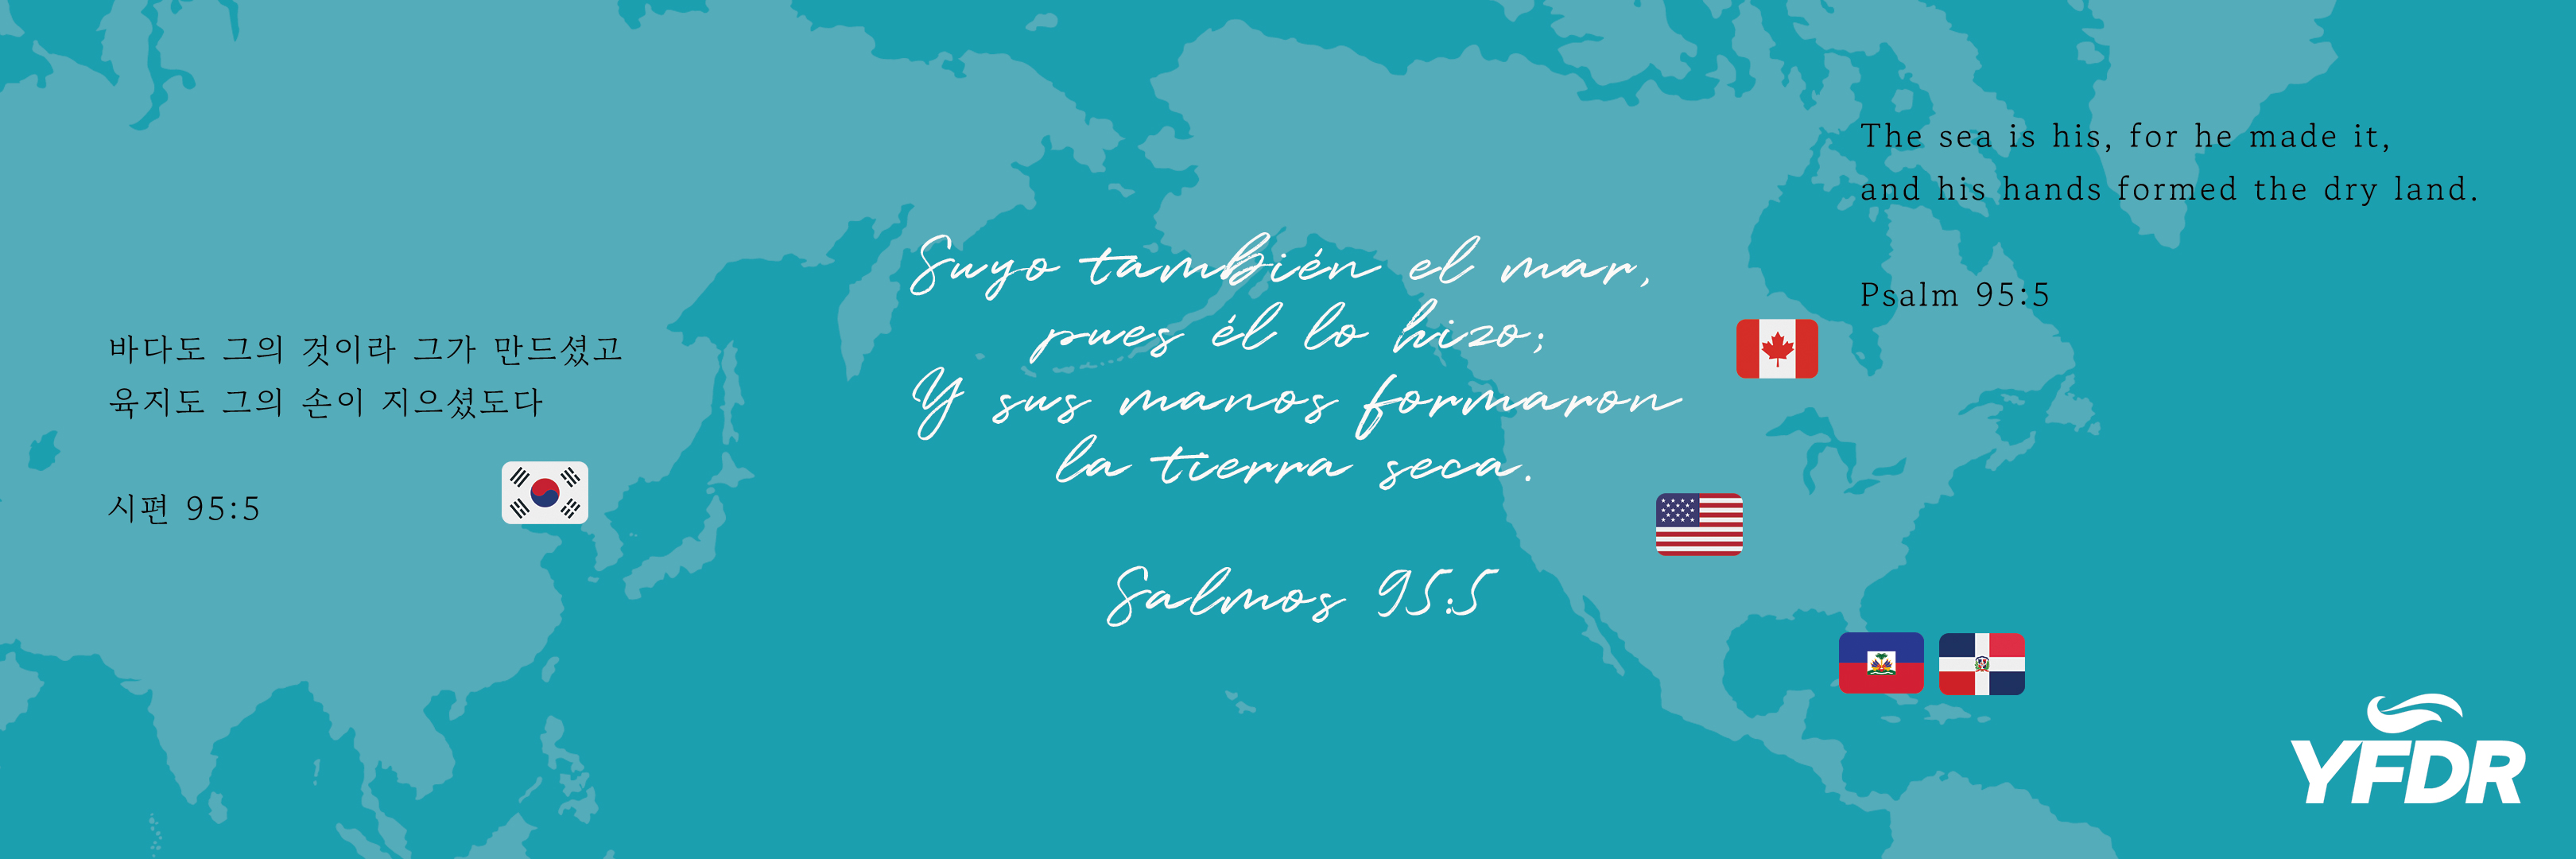 바다도 그의 것이라 그가 만드셨고
육지도 그의 손이 지으셨도다
시편 95:5
Suyo también el mar,
pues él lo hizo;
Y sus manos formaron
la tierra seca.
Salmos 95:5
The sea is his, for he made it,
and his hands formed the dry land.
Psalm 95:5
YFDR